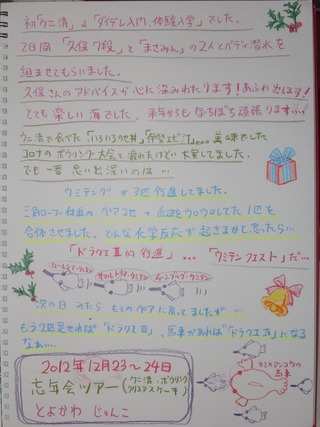 初「ウニ清」&「ダイデレ入門、体験入学」でした。
2日間「久保7段」と「まさみん」の2人とバディ潜水を
組ませてもらいました。
久保さんのアドバイスが心に深みわたります!あふれ出します!
とても楽しい海でした。来年からもぼちぼち頑張ります…!
ウニ清で食べた「いろいろウセ丼」「伊勢エビ汁」。。。美味でした
コロナのボウリング大会と疲れたけどい大笑しました。
でも一番思い出深いのは…
ウミテングが3匹行進してました。
三角ローブ付近のペア2モ + 近辺をウロウロしてた1匹を
合体させました。どんな化学反応が起きるかと思ったら…
「ドラクエIII的行進」…「ウミテンクエスト」だ…
次の日みたらもとのペアに戻ってましたが…
もう1匹足せれば「ドラクエIII」、馬車があれば「ドラクエIV」になる
なぁ…
の馬車
2012年12月23~24日
忘年会ツアー(ウニ清・ボウリング
クリスマスケーキ)
とよかわ じゅんこ